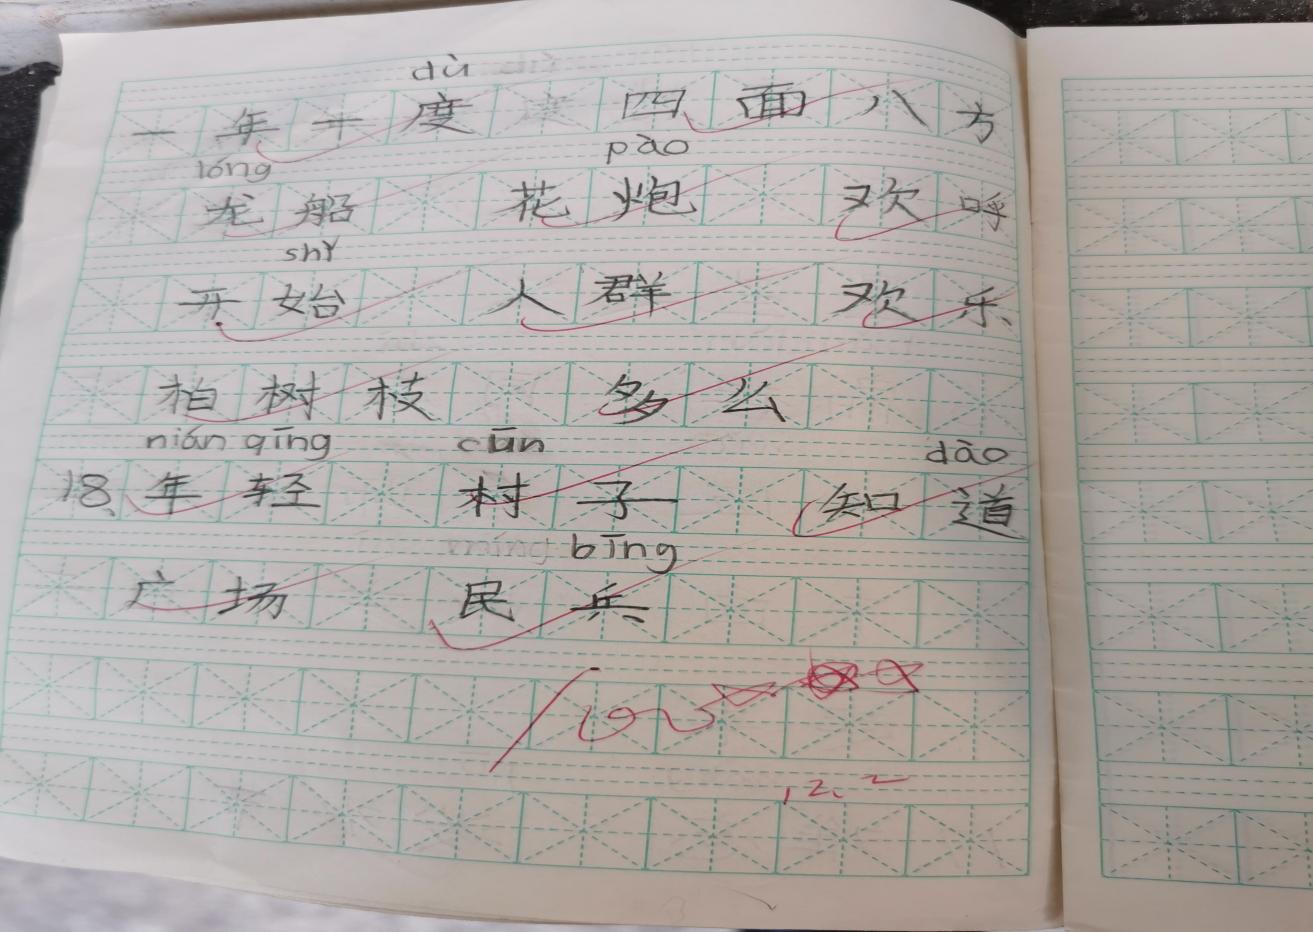 dù
一年十度 四面八方
lóng pào
龙船 花炮 欢呼
shǐ
开始 人群 欢乐
柏树枝 多么
nián qīng cūn dào
18、年轻 村子 知道
bīng
广场 民兵
100
12.2